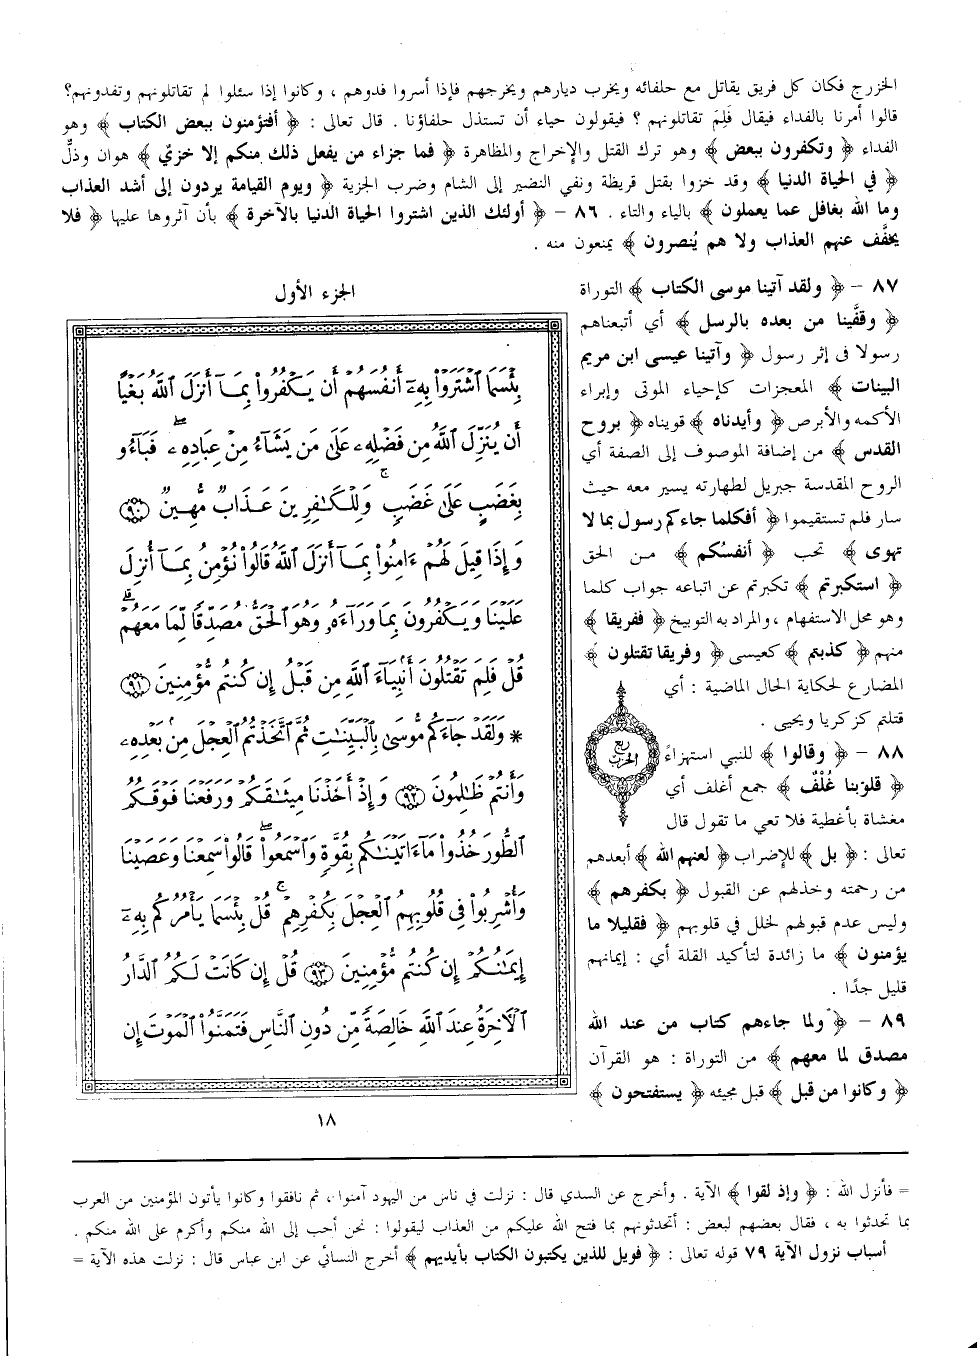 الخزرج فكان كل فريق يقاتل مع حلفائه ويخرب ديارهم ويخرجهم فإذا أسروا فدوهم ، وكانوا إذا سئلوا لم تقاتلونهم وتفدونهم؟
قالوا أمرنا بالفداء فيقال فَلِمَ تقاتلونهم ؟ فيقولون حياء أن تستذل حلفاؤنا . قال تعالى : ﴿ أفتؤمنون ببعض الكتاب ﴾ وهو
الفداء ﴿ وتكفرون ببعض ﴾ وهو ترك القتل والإخراج والمظاهرة ﴿ فما جزاء من يفعل ذلك منكم إلا خزيٌ ﴾ هوان وذلٌ
﴿ في الحياة الدنيا ﴾ وقد خزوا بقتل قريظة ونفي النضير إلى الشام وضرب الجزية ﴿ ويوم القيامة يردون إلى أشد العذاب
وما الله بغافل عما يعملون ﴾ بالياء والتاء . ٨٦ – ﴿ أولئك الذين اشتروا الحياة الدنيا بالآخرة ﴾ بأن آثروها عليها ﴿ فلا
يخفَّف عنهم العذاب ولا هم يُنصرون ﴾ يمنعون منه .
٨٧ – ﴿ ولقد آتينا موسى الكتاب ﴾ التوراة
﴿ وقفَّينا من بعده بالرسل ﴾ أي أتبعناهم
رسولا في إثر رسول ﴿ وآتينا عيسى ابن مريم
البينات ﴾ المعجزات كإحياء الموتى وإبراء
الأكمه والأبرص ﴿ وأيدناه ﴾ قويناه ﴿ بروح
القدس ﴾ من إضافة الموصوف إلى الصفة أي
الروح المقدسة جبريل لطهارته يسير معه حيث
سار فلم تستقيموا ﴿ أفكلما جاءكم رسول بما لا
تهوى ﴾ تحب ﴿ أنفسُكم ﴾ من الحق
﴿ استكبرتم ﴾ تكبرتم عن اتباعه جواب كلما
وهو محل الاستفهام ، والمراد به التوبيخ ﴿ ففريقا ﴾
منهم ﴿ كذبتم ﴾ كعيسى ﴿ وفريقا تقتلون ﴾
المضارع لحكاية الحال الماضية : أي
قتلتم كزكريا ويحيى .
٨٨ – ﴿ وقالوا ﴾ للنبي استهزاءً
﴿ قلوبنا غُلْفٌ ﴾ جمع أغلف أي
مغشاة بأغطية فلا تعي ما تقول قال
تعالى : ﴿ بل ﴾ للإضراب ﴿ لعنهم الله ﴾ أبعدهم
من رحمته وخذلهم عن القبول ﴿ بكفرهم ﴾
وليس عدم قبولهم لخلل في قلوبهم ﴿ فقليلا ما
يؤمنون ﴾ ما زائدة لتأكيد القلة أي : إيمانهم
قليل جدًا .
٨٩ – ﴿ ولما جاءهم كتاب من عند الله
مصدق لما معهم ﴾ من التوراة : هو القرآن
﴿ وكانوا من قبل ﴾ قبل مجيئه ﴿ يستفتحون ﴾
ربع
الحزب
الجزء الأول
بِئْسَمَا ٱشْتَرَوْا۟ بِهِۦٓ أَنفُسَهُمْ أَن يَكْفُرُوا۟ بِمَآ أَنزَلَ ٱللَّهُ بَغْيًا
أَن يُنَزِّلَ ٱللَّهُ مِن فَضْلِهِۦ عَلَىٰ مَن يَشَآءُ مِنْ عِبَادِهِۦ ۖ فَبَآءُو
بِغَضَبٍ عَلَىٰ غَضَبٍ ۚ وَلِلْكَـٰفِرِينَ عَذَابٌ مُّهِينٌ ٩٠
وَإِذَا قِيلَ لَهُمْ ءَامِنُوا۟ بِمَآ أَنزَلَ ٱللَّهُ قَالُوا۟ نُؤْمِنُ بِمَآ أُنزِلَ
عَلَيْنَا وَيَكْفُرُونَ بِمَا وَرَآءَهُۥ وَهُوَ ٱلْحَقُّ مُصَدِّقًا لِّمَا مَعَهُمْ ۗ
قُلْ فَلِمَ تَقْتُلُونَ أَنۢبِيَآءَ ٱللَّهِ مِن قَبْلُ إِن كُنتُم مُّؤْمِنِينَ ٩١
* وَلَقَدْ جَآءَكُم مُّوسَىٰ بِٱلْبَيِّنَـٰتِ ثُمَّ ٱتَّخَذْتُمُ ٱلْعِجْلَ مِنۢ بَعْدِهِۦ
وَأَنتُمْ ظَـٰلِمُونَ ٩٢ وَإِذْ أَخَذْنَا مِيثَـٰقَكُمْ وَرَفَعْنَا فَوْقَكُمُ
ٱلطُّورَ خُذُوا۟ مَآ ءَاتَيْنَـٰكُم بِقُوَّةٍ وَٱسْمَعُوا۟ ۖ قَالُوا۟ سَمِعْنَا وَعَصَيْنَا
وَأُشْرِبُوا۟ فِى قُلُوبِهِمُ ٱلْعِجْلَ بِكُفْرِهِمْ ۚ قُلْ بِئْسَمَا يَأْمُرُكُم بِهِۦٓ
إِيمَـٰنُكُمْ إِن كُنتُم مُّؤْمِنِينَ ٩٣ قُلْ إِن كَانَتْ لَكُمُ ٱلدَّارُ
ٱلْـَٔاخِرَةُ عِندَ ٱللَّهِ خَالِصَةً مِّن دُونِ ٱلنَّاسِ فَتَمَنَّوُا۟ ٱلْمَوْتَ إِن
١٨
= فأنزل الله : ﴿ وإذ لقوا ﴾ الآية . وأخرج عن السدي قال : نزلت في ناس من اليهود آمنوا ، ثم نافقوا وكانوا يأتون المؤمنين من العرب
بما تحدثوا به ، فقال بعضهم لبعض : أتحدثونهم بما فتح الله عليكم من العذاب ليقولوا : نحن أحب إلى الله منكم وأكرم على الله منكم .
أسباب نزول الآية ٧٩ قوله تعالى : ﴿ فويل للذين يكتبون الكتاب بأيديهم ﴾ أخرج النسائي عن ابن عباس قال : نزلت هذه الآية =